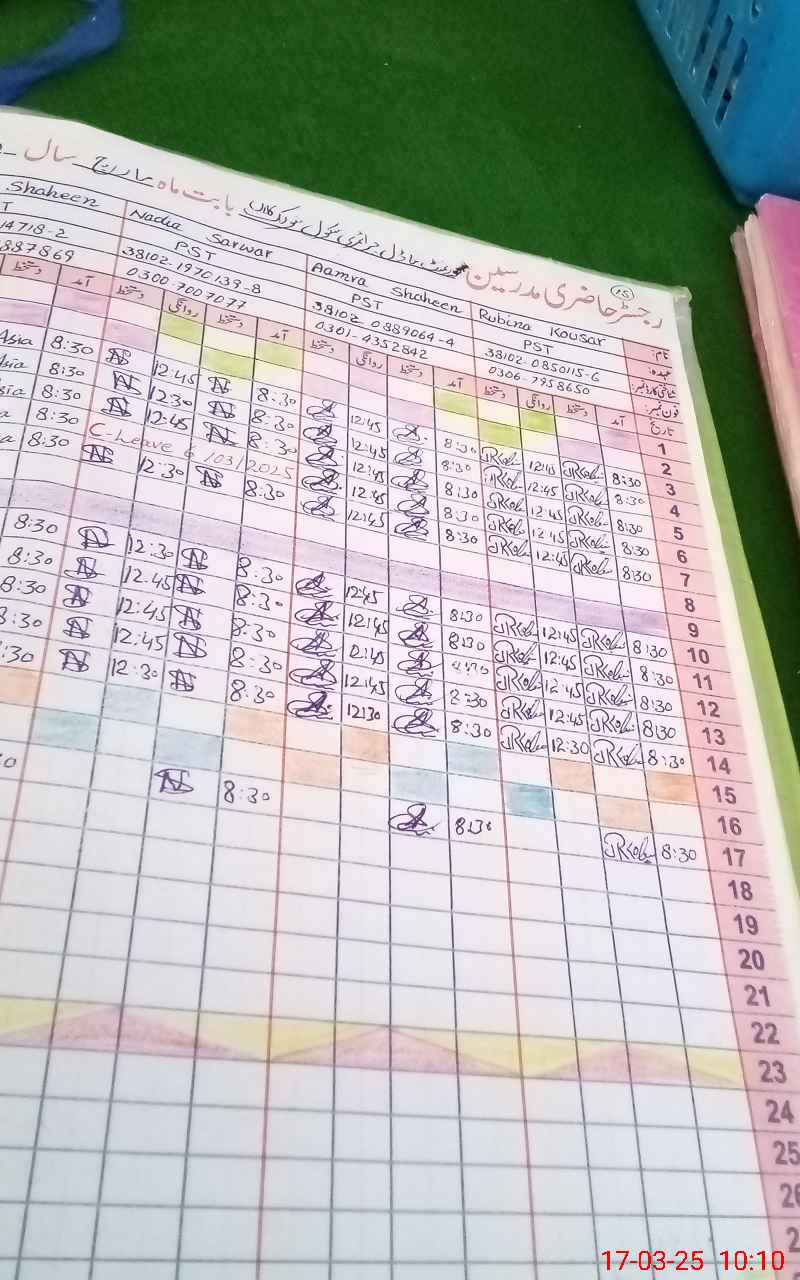 رجسٹر حاضری مدرسین
بابت ماہ مارچ سال
15
نام: Rubina Kousar Aamra Shaheen Nadia Sarwar Shaheen
عہدہ: PST PST PST T
شناختی کارڈ نمبر: 38102-0850115-6 38102-0889064-4 38102-1970139-8 14718-2
فون نمبر: 0306-7958650 0301-4352842 0300-7007077 887869
تاریخ آمد دستخط روانگی دستخط آمد دستخط روانگی دستخط آمد دستخط روانگی دستخط آمد دستخط
1
2
3 8:30 12:45 8:30 12:45 8:30 12:45 8:30 Asia
4 8:30 12:45 8:30 12:45 8:30 12:30 8:30 Asia
5 8:30 12:45 8:30 12:45 8:30 12:45 8:30 sia
6 8:30 12:45 8:30 12:45 C-Leave 6/03/2025 8:30 a
7 8:30 12:45 8:30 12:45 8:30 12:30 8:30 a
8
9
10 8:30 12:45 8:30 12:45 8:30 12:30 8:30
11 8:30 12:45 8:30 12:45 8:30 12:45 8:30
12 8:30 12:45 12:45 8:30 12:45 8:30
13 8:30 12:45 8:30 12:45 8:30 12:45 8:30
14 8:30 12:30 8:30 12:30 8:30 12:30 :30
15
16
17 8:30 8:30 8:30
18
19
20
21
22
23
24
25
17-03-25 10:10